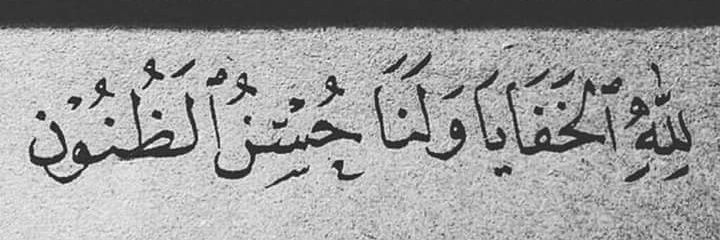 لِلّٰهِ ٱلْخَفَايَا وَلَنَا حُسْنُ ٱلظُّنُون